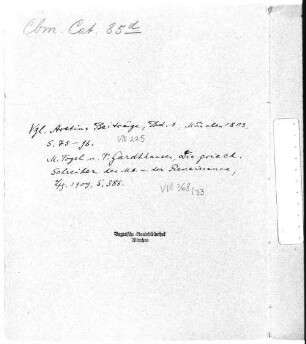 Cbm. Cat. 85d
Vgl. Aretins Beiträge, Bd. 1. München 1803,
S. 75-96.
VIII 225
M. Vogel u. V. Gardthausen, Die griech.
Schreiber des MA. u. der Renaissance,
Lpz. 1909, S. 385.
VIII 368/33.
Bayerische Staatsbibliothek
München